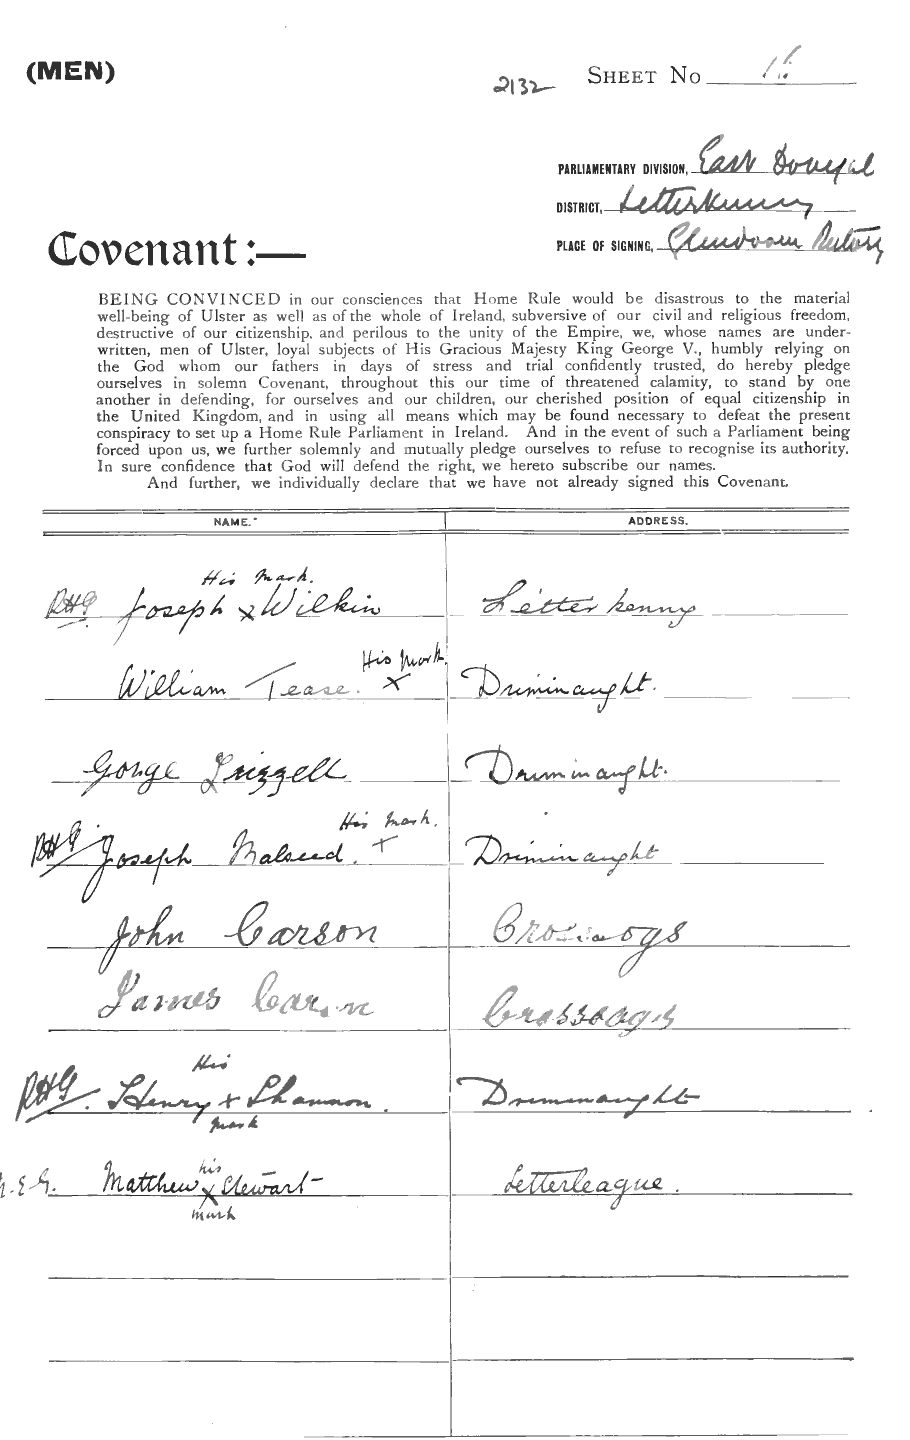 (MEN)
2132 SHEET No
PARLIAMENTARY DIVISION, East Donegal
DISTRICT, Letterkenny
PLACE OF SIGNING, Rectory
Covenant :—
BEING CONVINCED in our consciences that Home Rule would be disastrous to the material
well-being of Ulster as well as of the whole of Ireland, subversive of our civil and religious freedom,
destructive of our citizenship, and perilous to the unity of the Empire, we, whose names are under-
written, men of Ulster, loyal subjects of His Gracious Majesty King George V., humbly relying on
the God whom our fathers in days of stress and trial confidently trusted, do hereby pledge
ourselves in solemn Covenant, throughout this our time of threatened calamity, to stand by one
another in defending, for ourselves and our children, our cherished position of equal citizenship in
the United Kingdom, and in using all means which may be found necessary to defeat the present
conspiracy to set up a Home Rule Parliament in Ireland. And in the event of such a Parliament being
forced upon us, we further solemnly and mutually pledge ourselves to refuse to recognise its authority.
In sure confidence that God will defend the right, we hereto subscribe our names.
And further, we individually declare that we have not already signed this Covenant.
NAME. ADDRESS.
His Mark.
RHG Joseph x Wilkin Letterkenny
His Mark
William Tease. x Druminaught.
Gorge Frizzell Druminaught.
His Mark.
RHG Joseph Malseed. x Druminaught
John Carson Crossoogs
James Carson Crossoags
His
RHG. Henry x Shannon. Druminaught
mark
his
Matthew x Stewart Letterleague.
mark